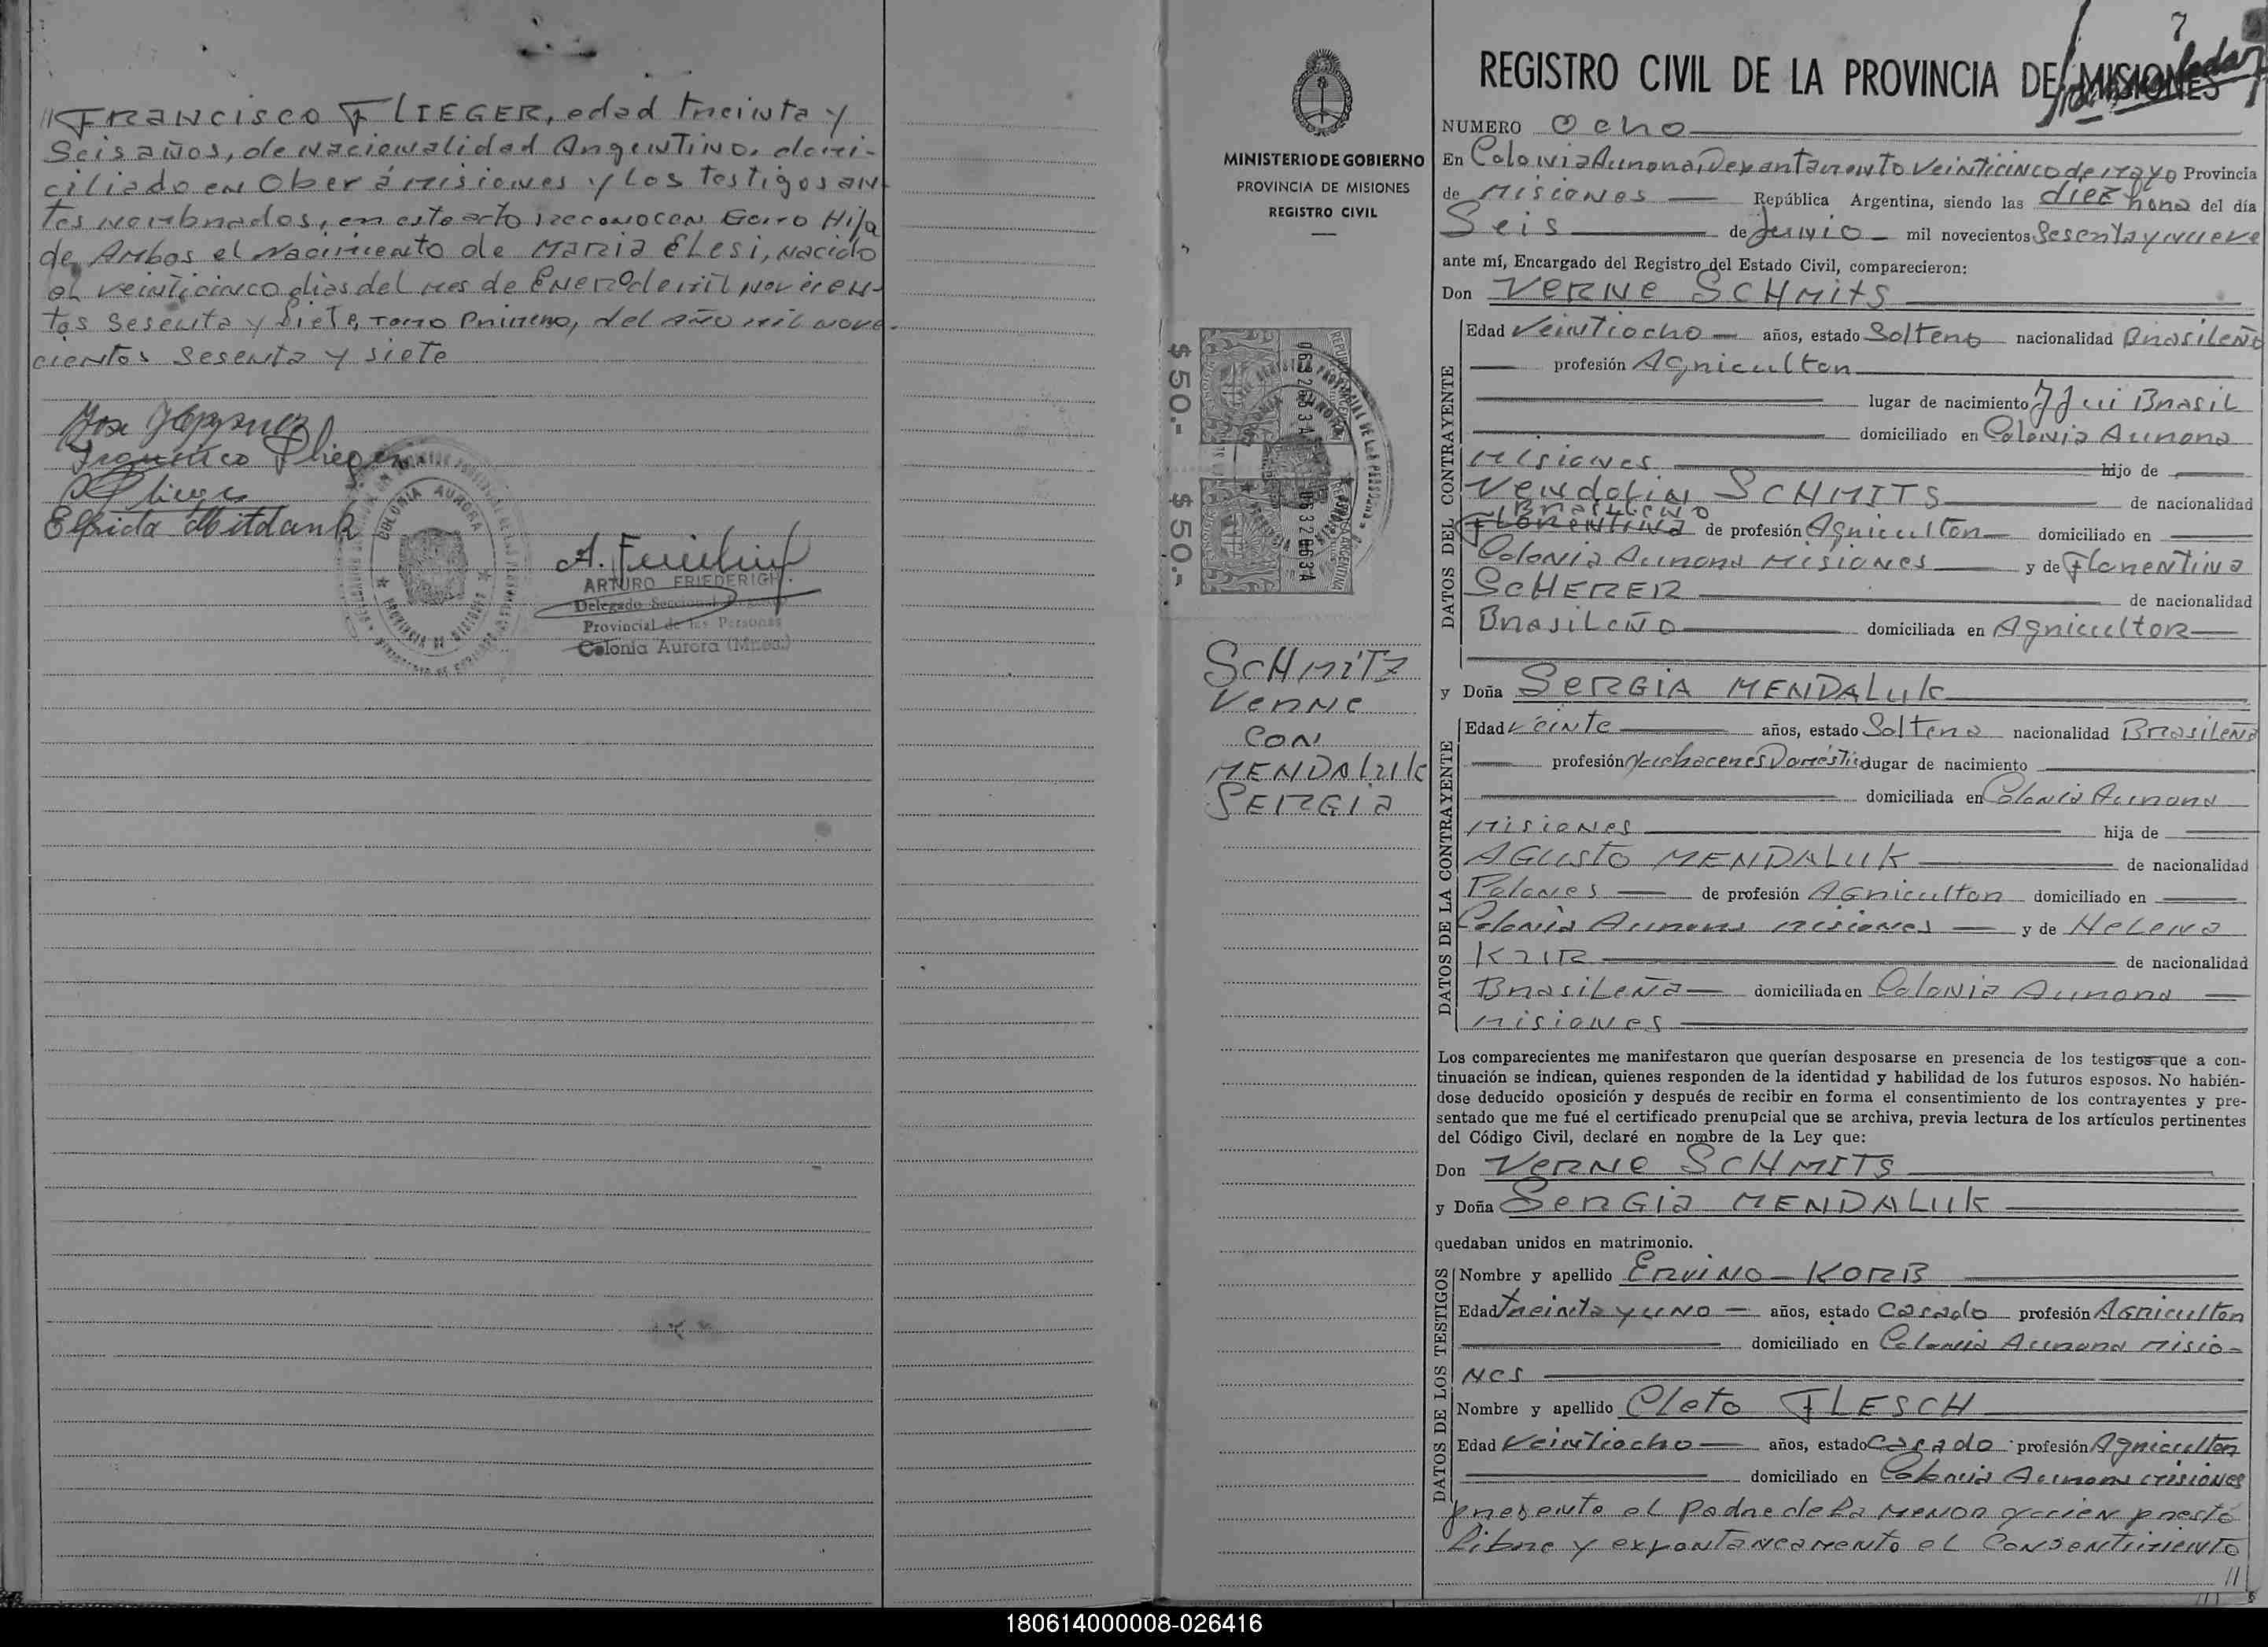 //FRANCISCO FLIEGER, edad treinta y
Seis años, de nacionalidad Argentino, domi-
ciliado en Oberá Misiones y los testigos an-
tes nombrados, en este acto reconocen como Hija
de Ambos el Nacimiento de MARIA ELESI, nacido
el veinticinco dias del mes de Enero de mil novecien-
tos sesenta y siete, Tomo Primero, del año mil nove-
cientos sesenta y siete
Francisco Flieger
COLONIA AURORA
PROVINCIA DE MISIONES
ARTURO FRIEDERICH
Delegado Seccional
Provincial de las Personas
Colonia Aurora (Mnes.)
MINISTERIO DE GOBIERNO
PROVINCIA DE MISIONES
REGISTRO CIVIL
$ 50.- $ 50.-
SCHMITZ
Verne
CON
MENDALUK
SERGIA
7
REGISTRO CIVIL DE LA PROVINCIA DE MISIONES
NUMERO Ocho
En Colonia Aurora, Departamento Veinticinco de Mayo Provincia
de Misiones República Argentina, siendo las diez hora del día
Seis de Junio mil novecientos Sesenta y nueve
ante mí, Encargado del Registro del Estado Civil, comparecieron:
Don VERNE SCHMITS
DATOS DEL CONTRAYENTE
Edad Veintiocho años, estado Soltero nacionalidad Brasileño
profesión Agricultor
lugar de nacimiento Ijui Brasil
domiciliado en Colonia Aurora
Misiones hijo de
Vendolin SCHMITS de nacionalidad
Brasileno
Florentina de profesión Agricultor domiciliado en
Colonia Aurora Misiones y de Florentina
SCHERER de nacionalidad
Brasileño domiciliada en Agricultor
y Doña SERGIA MENDALUK
DATOS DE LA CONTRAYENTE
Edad Veinte años, estado Soltera nacionalidad Brasileña
profesión Quehaceres Domésticos lugar de nacimiento
domiciliada en Colonia Aurora
Misiones hija de
AGUSTO MENDALUK de nacionalidad
Polones de profesión Agricultor domiciliado en
Colonia Aurora Misiones y de Helena
de nacionalidad
Brasileña domiciliada en Colonia Aurora
Misiones
Los comparecientes me manifestaron que querían desposarse en presencia de los testigos que a con-
tinuación se indican, quienes responden de la identidad y habilidad de los futuros esposos. No habién-
dose deducido oposición y después de recibir en forma el consentimiento de los contrayentes y pre-
sentado que me fué el certificado prenupcial que se archiva, previa lectura de los artículos pertinentes
del Código Civil, declaré en nombre de la Ley que:
Don VERNE SCHMITS
y Doña SERGIA MENDALUK
quedaban unidos en matrimonio.
DATOS DE LOS TESTIGOS
Nombre y apellido Ervino KORB
Edad treinta y uno años, estado casado profesión Agricultor
domiciliado en Colonia Aurora Misio-
nes
Nombre y apellido Cleto FLESCH
Edad Veintiocho años, estado casado profesión Agricultor
domiciliado en Colonia Aurora Misiones
presente el padre de la menor quien prestó
libre y expontaneamente el Consentimiento
//
180614000008-026416